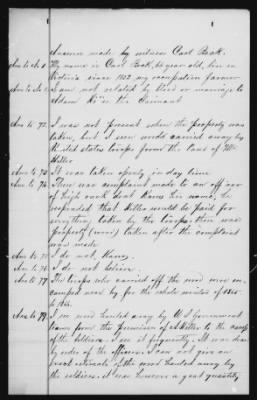 Answers made by witness Carl Beck.
My name is Carl Beck, 66 year old, live in
Victoria since 1852 my occupation farmer
I am not related by blood or marriage to
Adam the Claimant
Ans to 72 I was not present when the property was
taken, but I seen wood carried away by
United States troops from the land of Mr
Hiller
Ans to 73 It was taken openly in day time
Ans to 74 There was complaint made to an officer
of high rank dont know his name, he
responded that Hiller would be paid for
everything taken by the troops, there was
property (wood) taken after the complaint
was made
I do not know.
Ans to 76 I do not believe.
Ans to 77 The troops who carried off the wood were en-
camped near by for the whole winter of 1865
to 1866.
I seen wood hauled away by U S Government
teams from the premises of A Hiller to the camp
of the Soldiers. I seen it frequently. It was done
by order of the officers. I can not give an
exact estimate of the wood hauled away by
the soldiers, it was however a great quantity